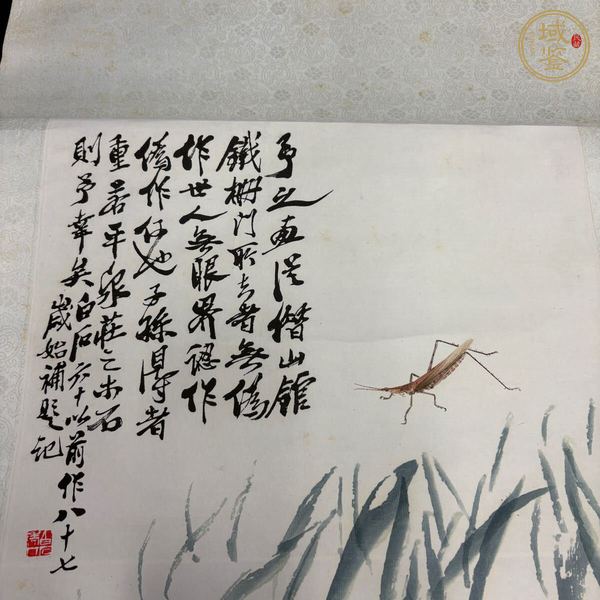 予之画从借山馆
铁栅门所去者无伪
作世人无眼界认作
伪作何也子孙得者
重若平泉庄之木石
則予幸矣白石六十以前作八十七
歲始補題記
域鉴